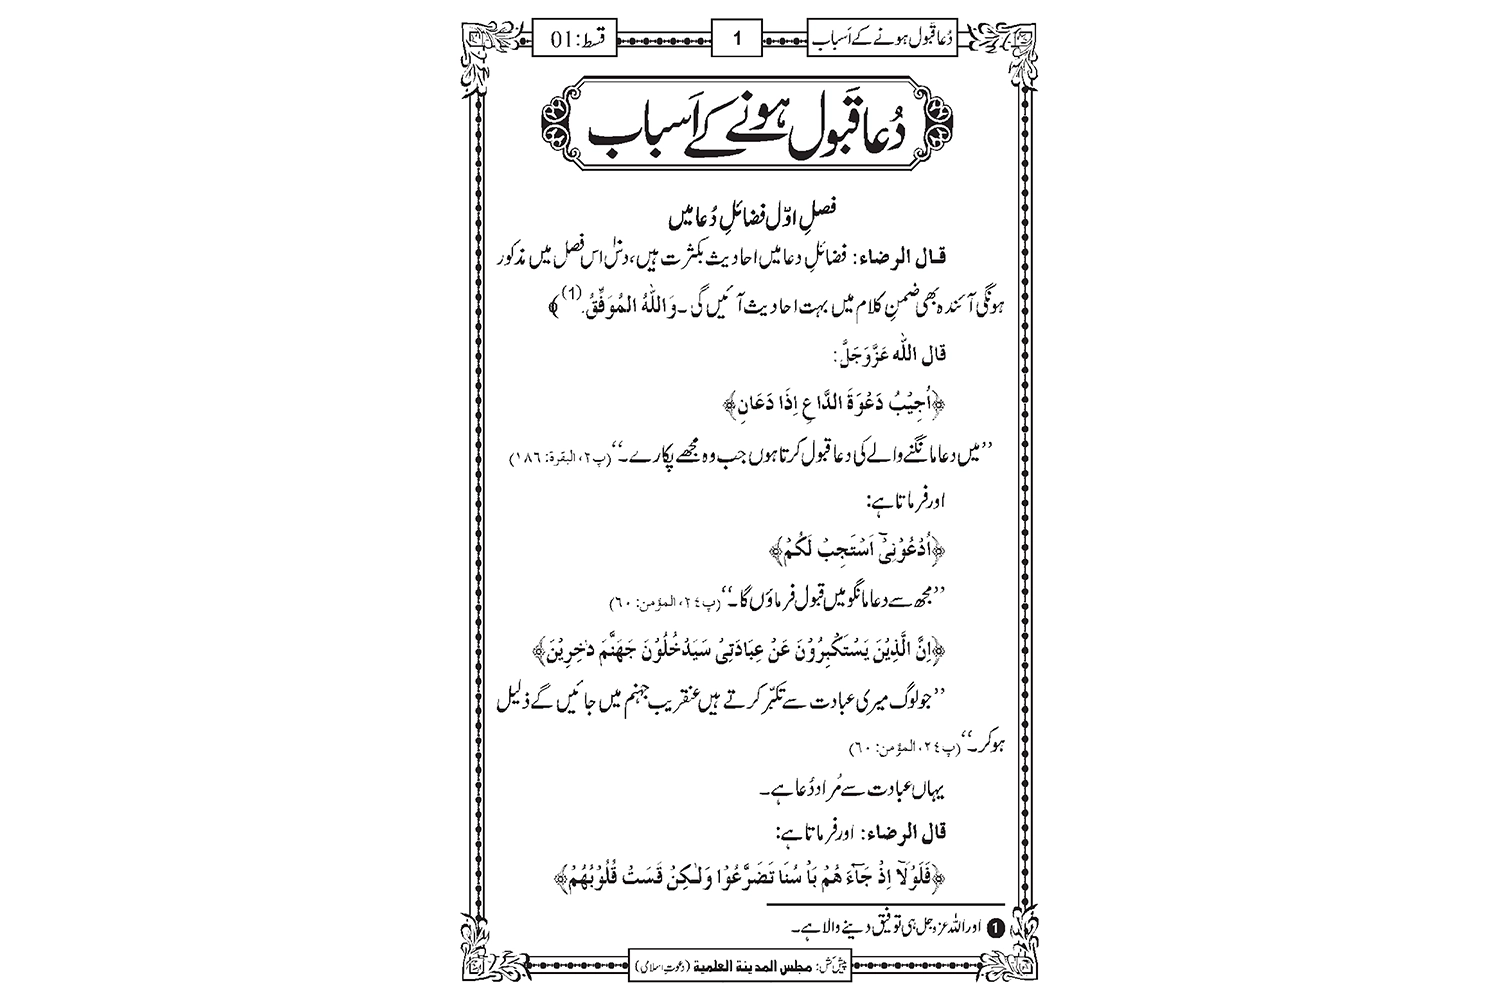 دُعا قَبول ہونے کے اَسباب
1
قسط: 01
دُعا قَبول ہونے کے اَسباب
فصلِ اوّل فضائلِ دُعا میں
قال الرضاء: فضائلِ دعا میں احادیث بکثرت ہیں، دس۱۰ اس فصل میں مذکور
ہونگی آئندہ بھی ضمنِ کلام میں بہت احادیث آئیں گی۔ وَاللّٰهُ الْمُوَفِّقُ. (1) ﴾
قال اللّٰه عَزَّوَجَلَّ:
﴿اُجِيْبُ دَعْوَةَ الدَّاعِ اِذَا دَعَانِ﴾
’’میں دعا مانگنے والے کی دعا قبول کرتا ہوں جب وہ مجھے پکارے۔‘‘ (پ٢، البقرة: ١٨٦)
اور فرماتا ہے:
﴿اُدْعُوْنِيْٓ اَسْتَجِبْ لَكُمْ﴾
’’مجھ سے دعا مانگو میں قبول فرماؤں گا۔‘‘ (پ٢٤، المؤمن: ٦٠)
﴿اِنَّ الَّذِيْنَ يَسْتَكْبِرُوْنَ عَنْ عِبَادَتِيْ سَيَدْخُلُوْنَ جَهَنَّمَ دٰخِرِيْنَ﴾
’’جو لوگ میری عبادت سے تکبّر کرتے ہیں عنقریب جہنم میں جائیں گے ذلیل
ہو کر۔‘‘ (پ٢٤، المؤمن: ٦٠)
یہاں عبادت سے مُراد دُعا ہے۔
قال الرضاء: اور فرماتا ہے:
﴿فَلَوْلَآ اِذْ جَآءَهُمْ بَاْسُنَا تَضَرَّعُوْا وَلٰكِنْ قَسَتْ قُلُوْبُهُمْ﴾
1 اور اللّٰہ عزوجل ہی توفیق دینے والا ہے۔
پیش کش: مجلس المدينة العلمية (دعوتِ اسلامی)